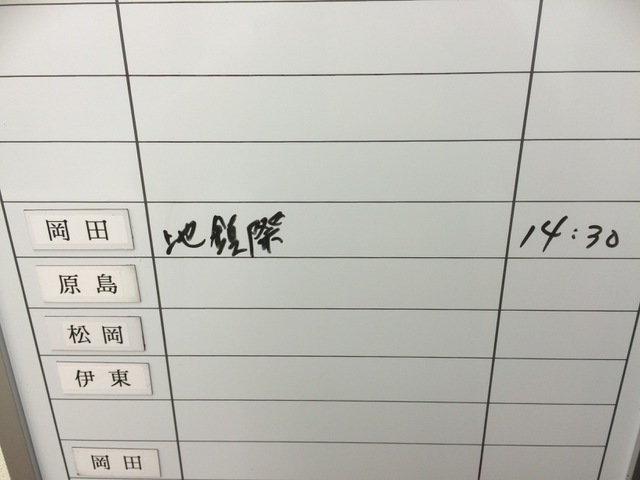 岡田 地鎮際 14:30
原島
松岡
伊東
岡田